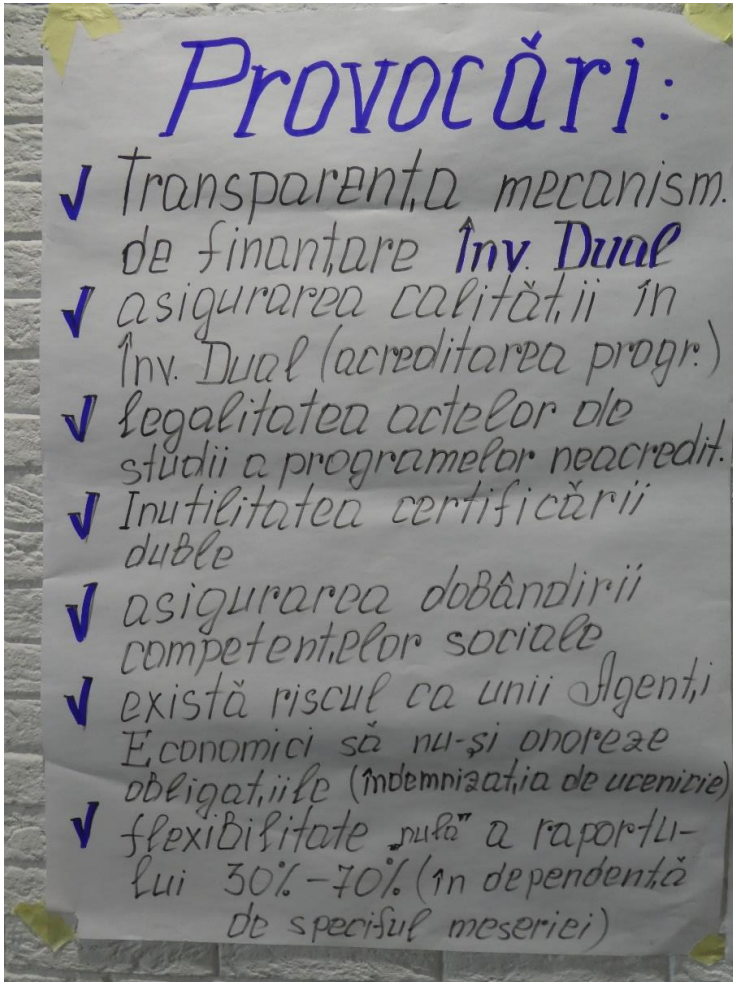 Provocări:
√ Transparența mecanism.
de finanțare Înv. Dual
√ asigurarea calității în
Înv. Dual (acreditarea progr.)
√ legalitatea actelor de
studii a programelor neacredit.
√ Inutilitatea certificării
duble
√ asigurarea dobândirii
competențelor sociale
√ există riscul ca unii Agenți
Economici să nu-și onoreze
obligațiile (îndemnizația de ucenicie)
√ flexibilitate „nulă” a raportu-
lui 30%-70% (în dependență
de speciful meseriei)